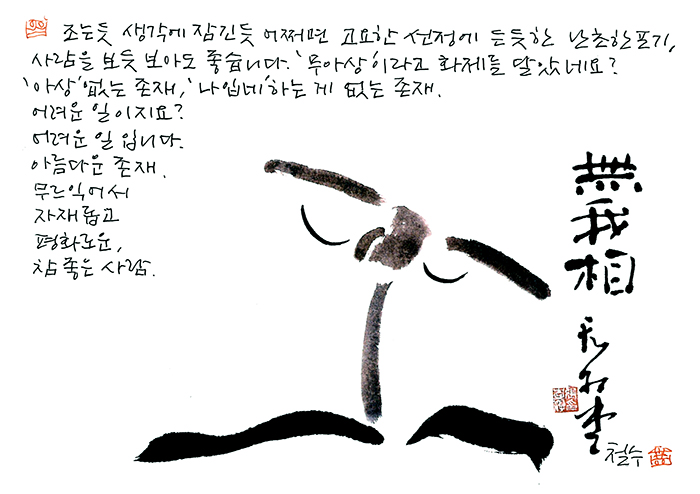 조는듯 생각에 잠긴듯 어쩌면 고요한 선정에 든듯한 난초한포기,
사람을 보듯 보아도 좋습니다. '무아상'이라고 화제를 달았네요?
'아상'없는 존재, '나입네'하는 게 없는 존재.
어려운 일이지요?
어려운 일 입니다.
아름다운 존재.
무르익어서
자재롭고
평화로운,
참 좋은 사람.
無我相
철수